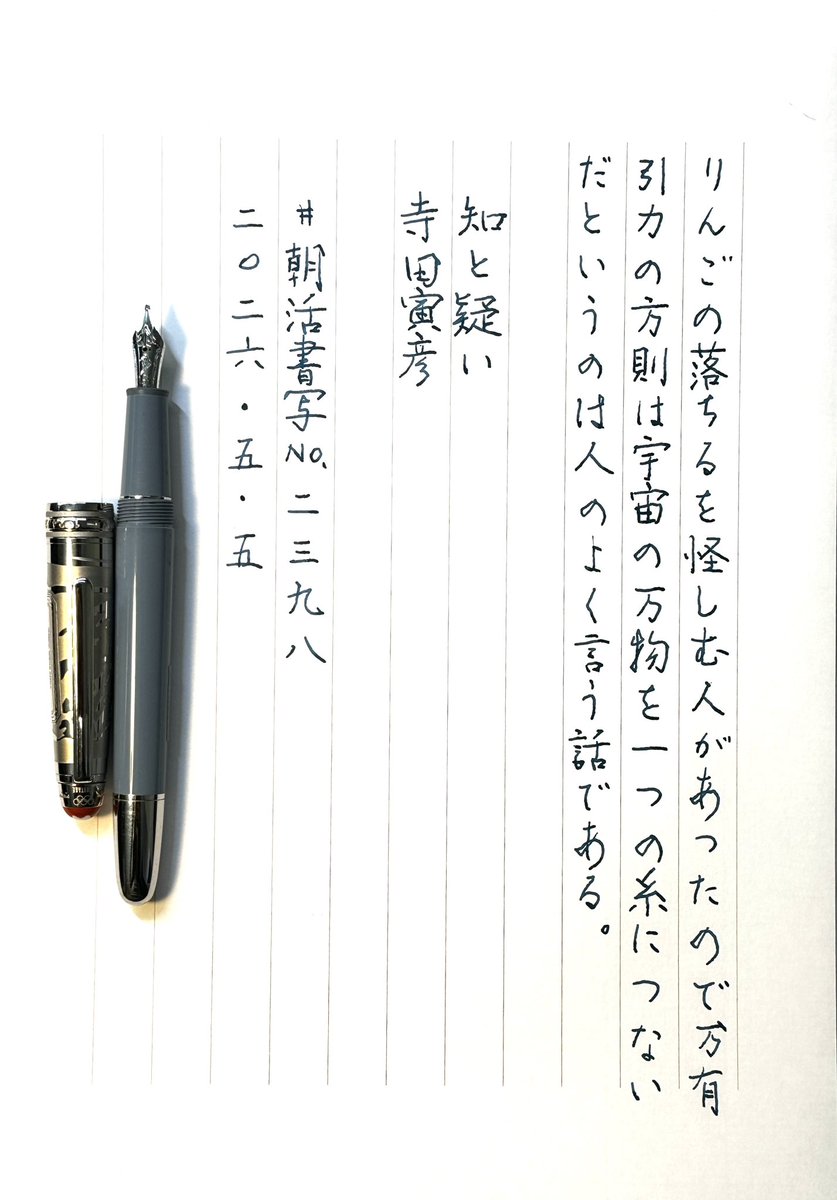 りんごの落ちるを怪しむ人があつたので万有
引力の方則は宇宙の万物を一つの糸につない
だというのは人のよく言う話である。
知と疑い
寺田寅彦
#朝活書写No.二三九八
二〇二六・五・五